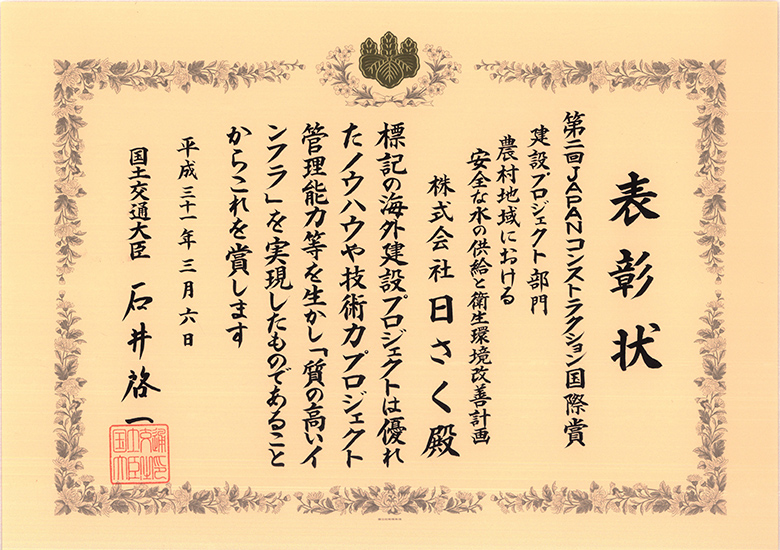 表彰状
第二回JAPANコンストラクション国際賞
建設プロジェクト部門
農村地域における
安全な水の供給と衛生環境改善計画
株式会社日さく殿
標記の海外建設プロジェクトは優れ
たノウハウや技術力プロジェクト
管理能力等を生かし「質の高いイ
ンフラ」を実現したものであること
からこれを賞します
平成三十一年三月六日
国土交通大臣 石井啓一